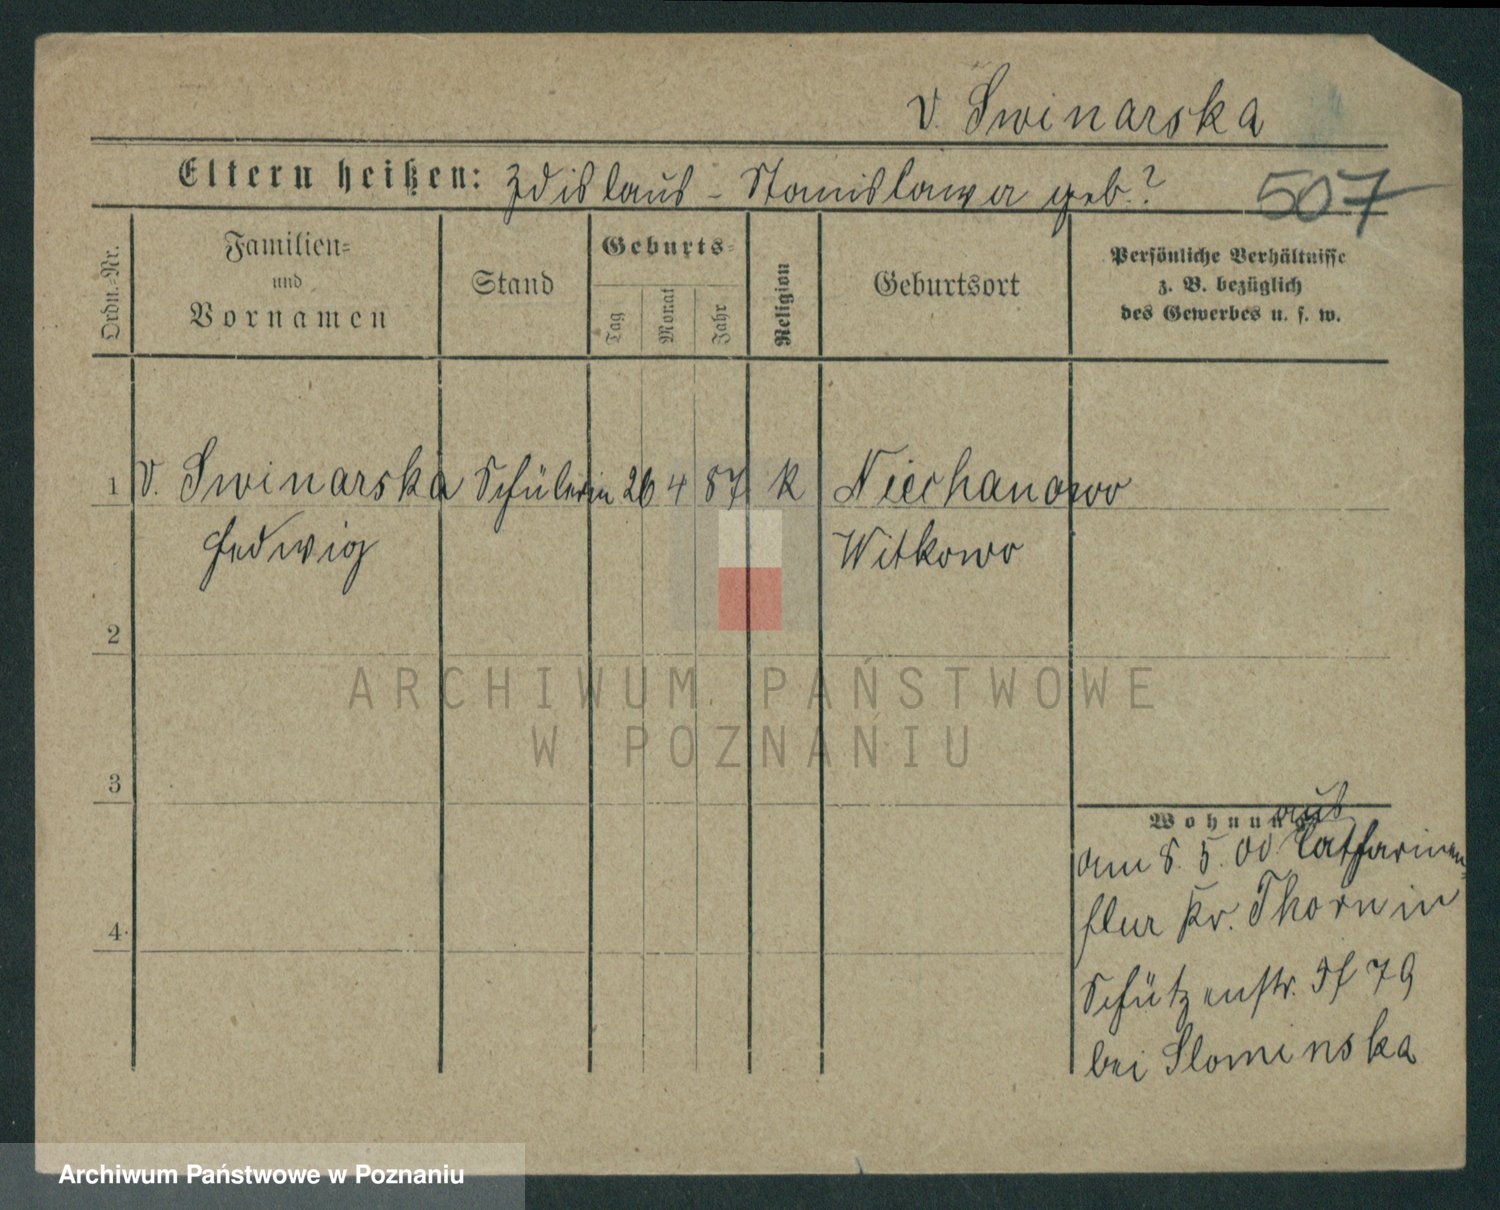 v. Swinarska
Eltern heißen: Zdislaus - Stanislawa geb. ?
507
Ordn.-Nr.
Familien-
und
Vornamen
Stand
Geburts-
Tag
Monat
Jahr
Religion
Geburtsort
Persönliche Verhältnisse
z. B. bezüglich
des Gewerbes u. s. w.
1 v. Swinarska Schülerin 26 4 87 K Niechanowo
Hedwig Witkowo
2
ARCHIWUM PAŃSTWOWE
W POZNANIU
3
Wohnung
aus
am 8. 5. 00 Catharinen-
flur Kr. Thorn in
4
Schützenstr. 79
bei Slominska
Archiwum Państwowe w Poznaniu